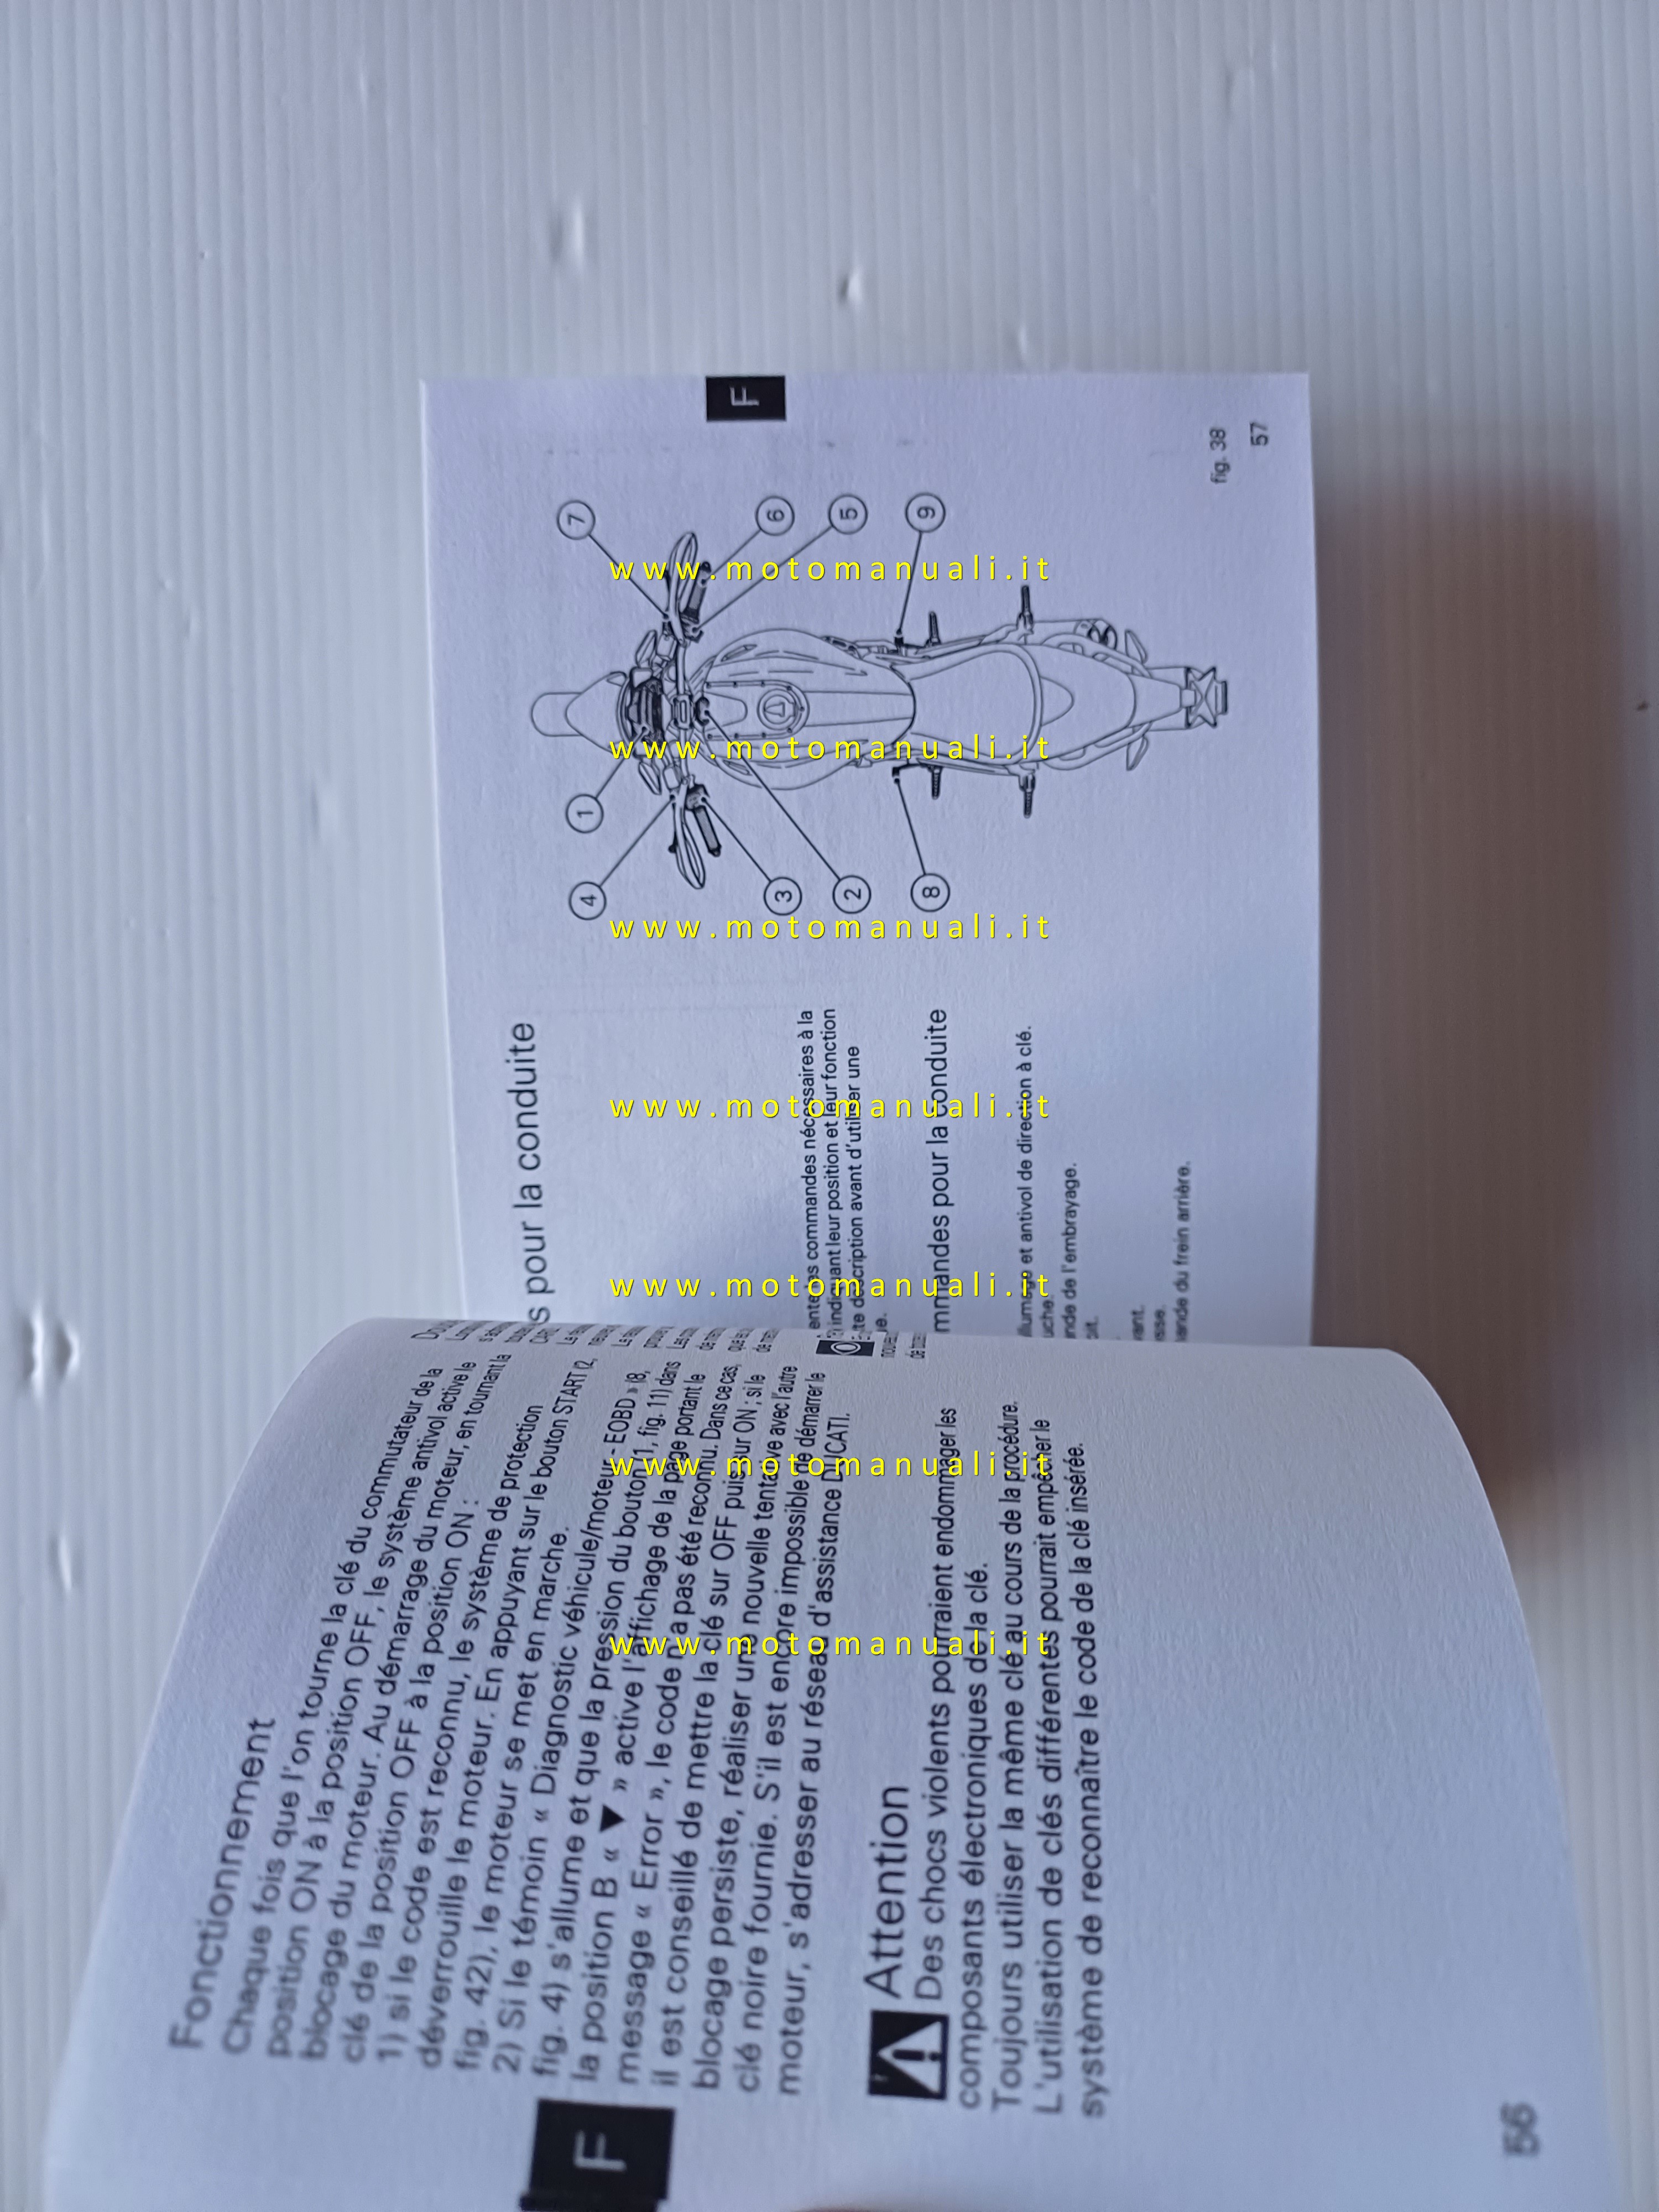 Fonctionnement
Chaque fois que l'on tourne la clé du commutateur de la
position ON à la position OFF, le système antivol active le
blocage du moteur. Au démarrage du moteur, en tournant la
clé de la position OFF à la position ON :
1) si le code est reconnu, le système de protection
déverrouille le moteur. En appuyant sur le bouton START (2,
fig. 42), le moteur se met en marche.
2) Si le témoin « Diagnostic véhicule/moteur - EOBD » (8,
fig. 4) s'allume et que la pression du bouton (1, fig. 11) dans
la position B « ▼ » active l'affichage de la page portant le
message « Error », le code n'a pas été reconnu. Dans ce cas,
il est conseillé de mettre la clé sur OFF puis sur ON ; si le
blocage persiste, réaliser une nouvelle tentative avec l'autre
clé noire fournie. S'il est encore impossible de démarrer le
moteur, s'adresser au réseau d'assistance DUCATI.
Attention
Des chocs violents pourraient endommager les
composants électroniques de la clé.
Toujours utiliser la même clé au cours de la procédure.
L'utilisation de clés différentes pourrait empêcher le
système de reconnaître le code de la clé insérée.
F
56
s pour la conduite
commandes nécessaires à la
indiquant leur position et leur fonction
description avant d'utiliser une
mmandes pour la conduite
et antivol de direction à clé.
uche.
nde de l'embrayage.
oit.
vant.
sse.
ande du frein arrière.
4
1
7
3
2
6
5
8
9
F
fig. 38
57
www.motomanuali.it
www.motomanuali.it
www.motomanuali.it
www.motomanuali.it
www.motomanuali.it
www.motomanuali.it
www.motomanuali.it